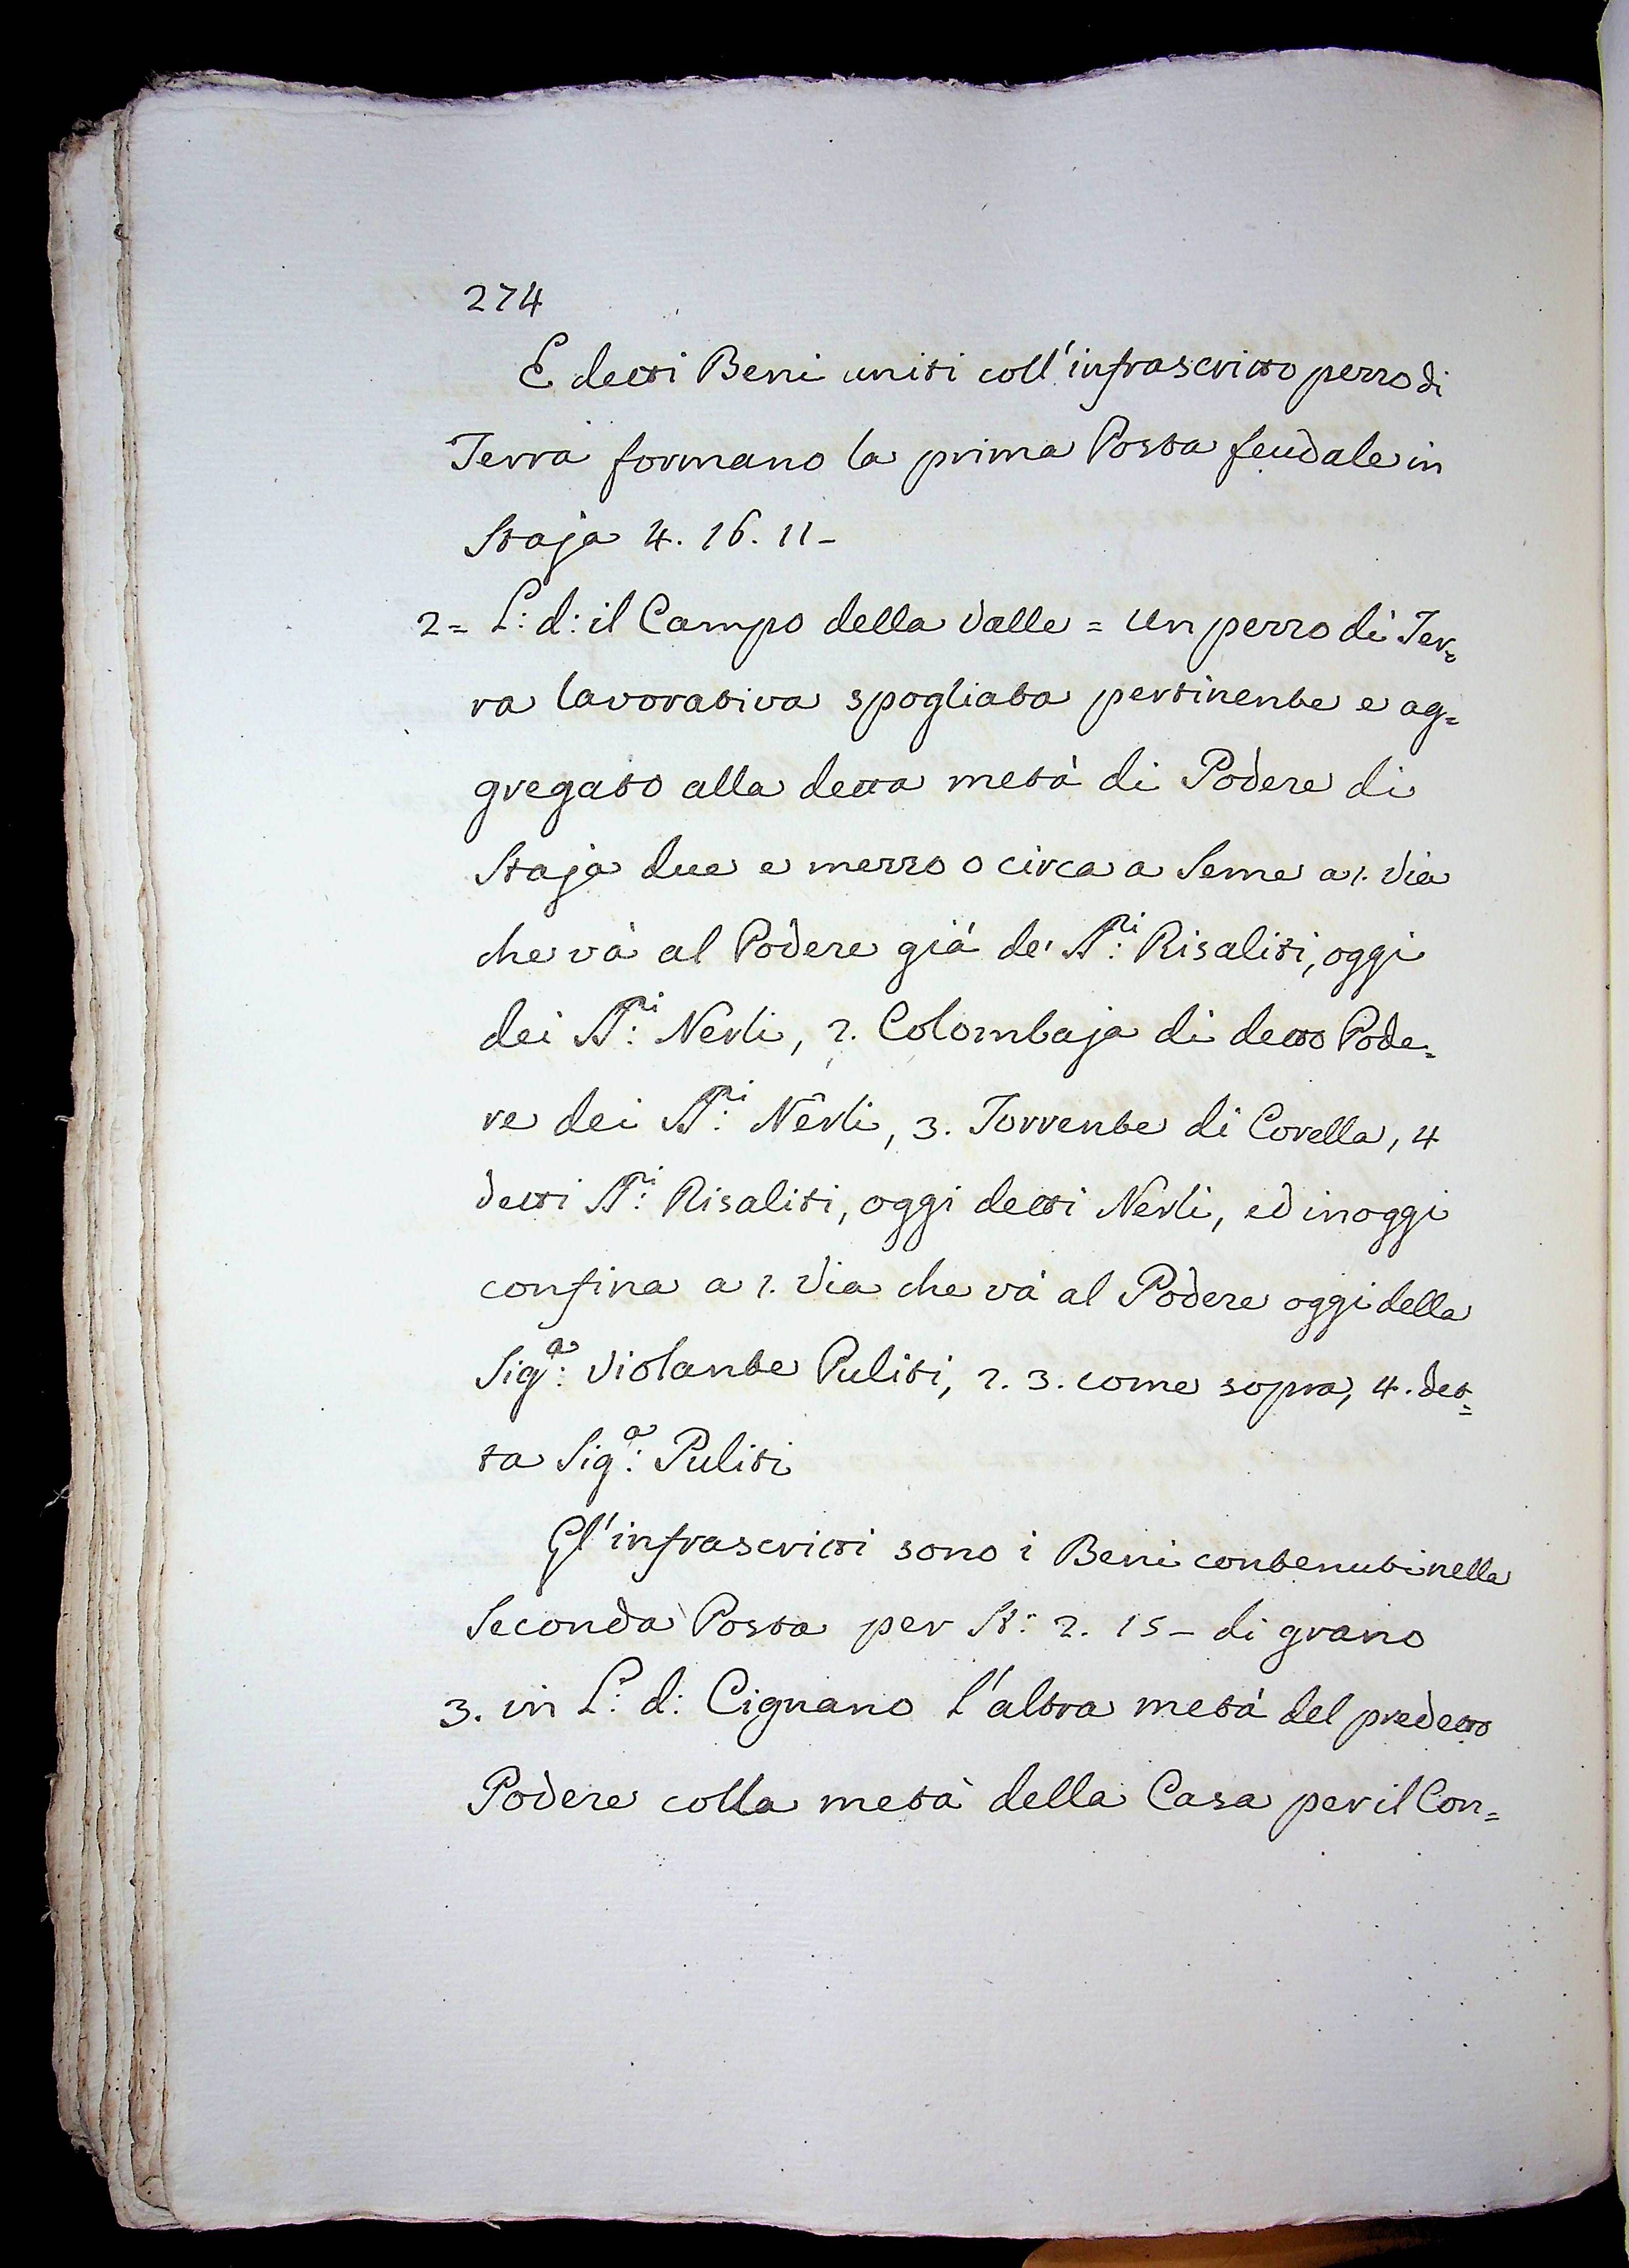 274
E detti Beni uniti coll'infrascritto pezzo di
Terra formano la prima Posta feudale in
Staja 4. 16. 11-
2= L: d: il Campo della Valle = Un pezzo di Ter=
ra lavorativa spogliata pertinente e ag=
gregato alla detta metà di Podere di
Staja due e mezzo o circa a Seme a 1. Via
che và al Podere già de' SS:ri Risaliti, oggi
dei SS:ri Nerli, 2. Colombaja di detto Pode=
re dei SS:ri Nerli, 3. Torrente di Corella, 4
detti SS:ri Risaliti, oggi detti Nerli, ed in oggi
confina a 1. Via che và al Podere oggi della
Sig:a Violante Puliti, 2. 3. come sopra, 4. det=
ta Sig:a Puliti
Gl'infrascritti sono i Beni contenuti nella
Seconda Posta per St: 2. 15- di grano
3. in L: d: Cignano l'altra metà del predetto
Podere colla metà della Casa per il Con=